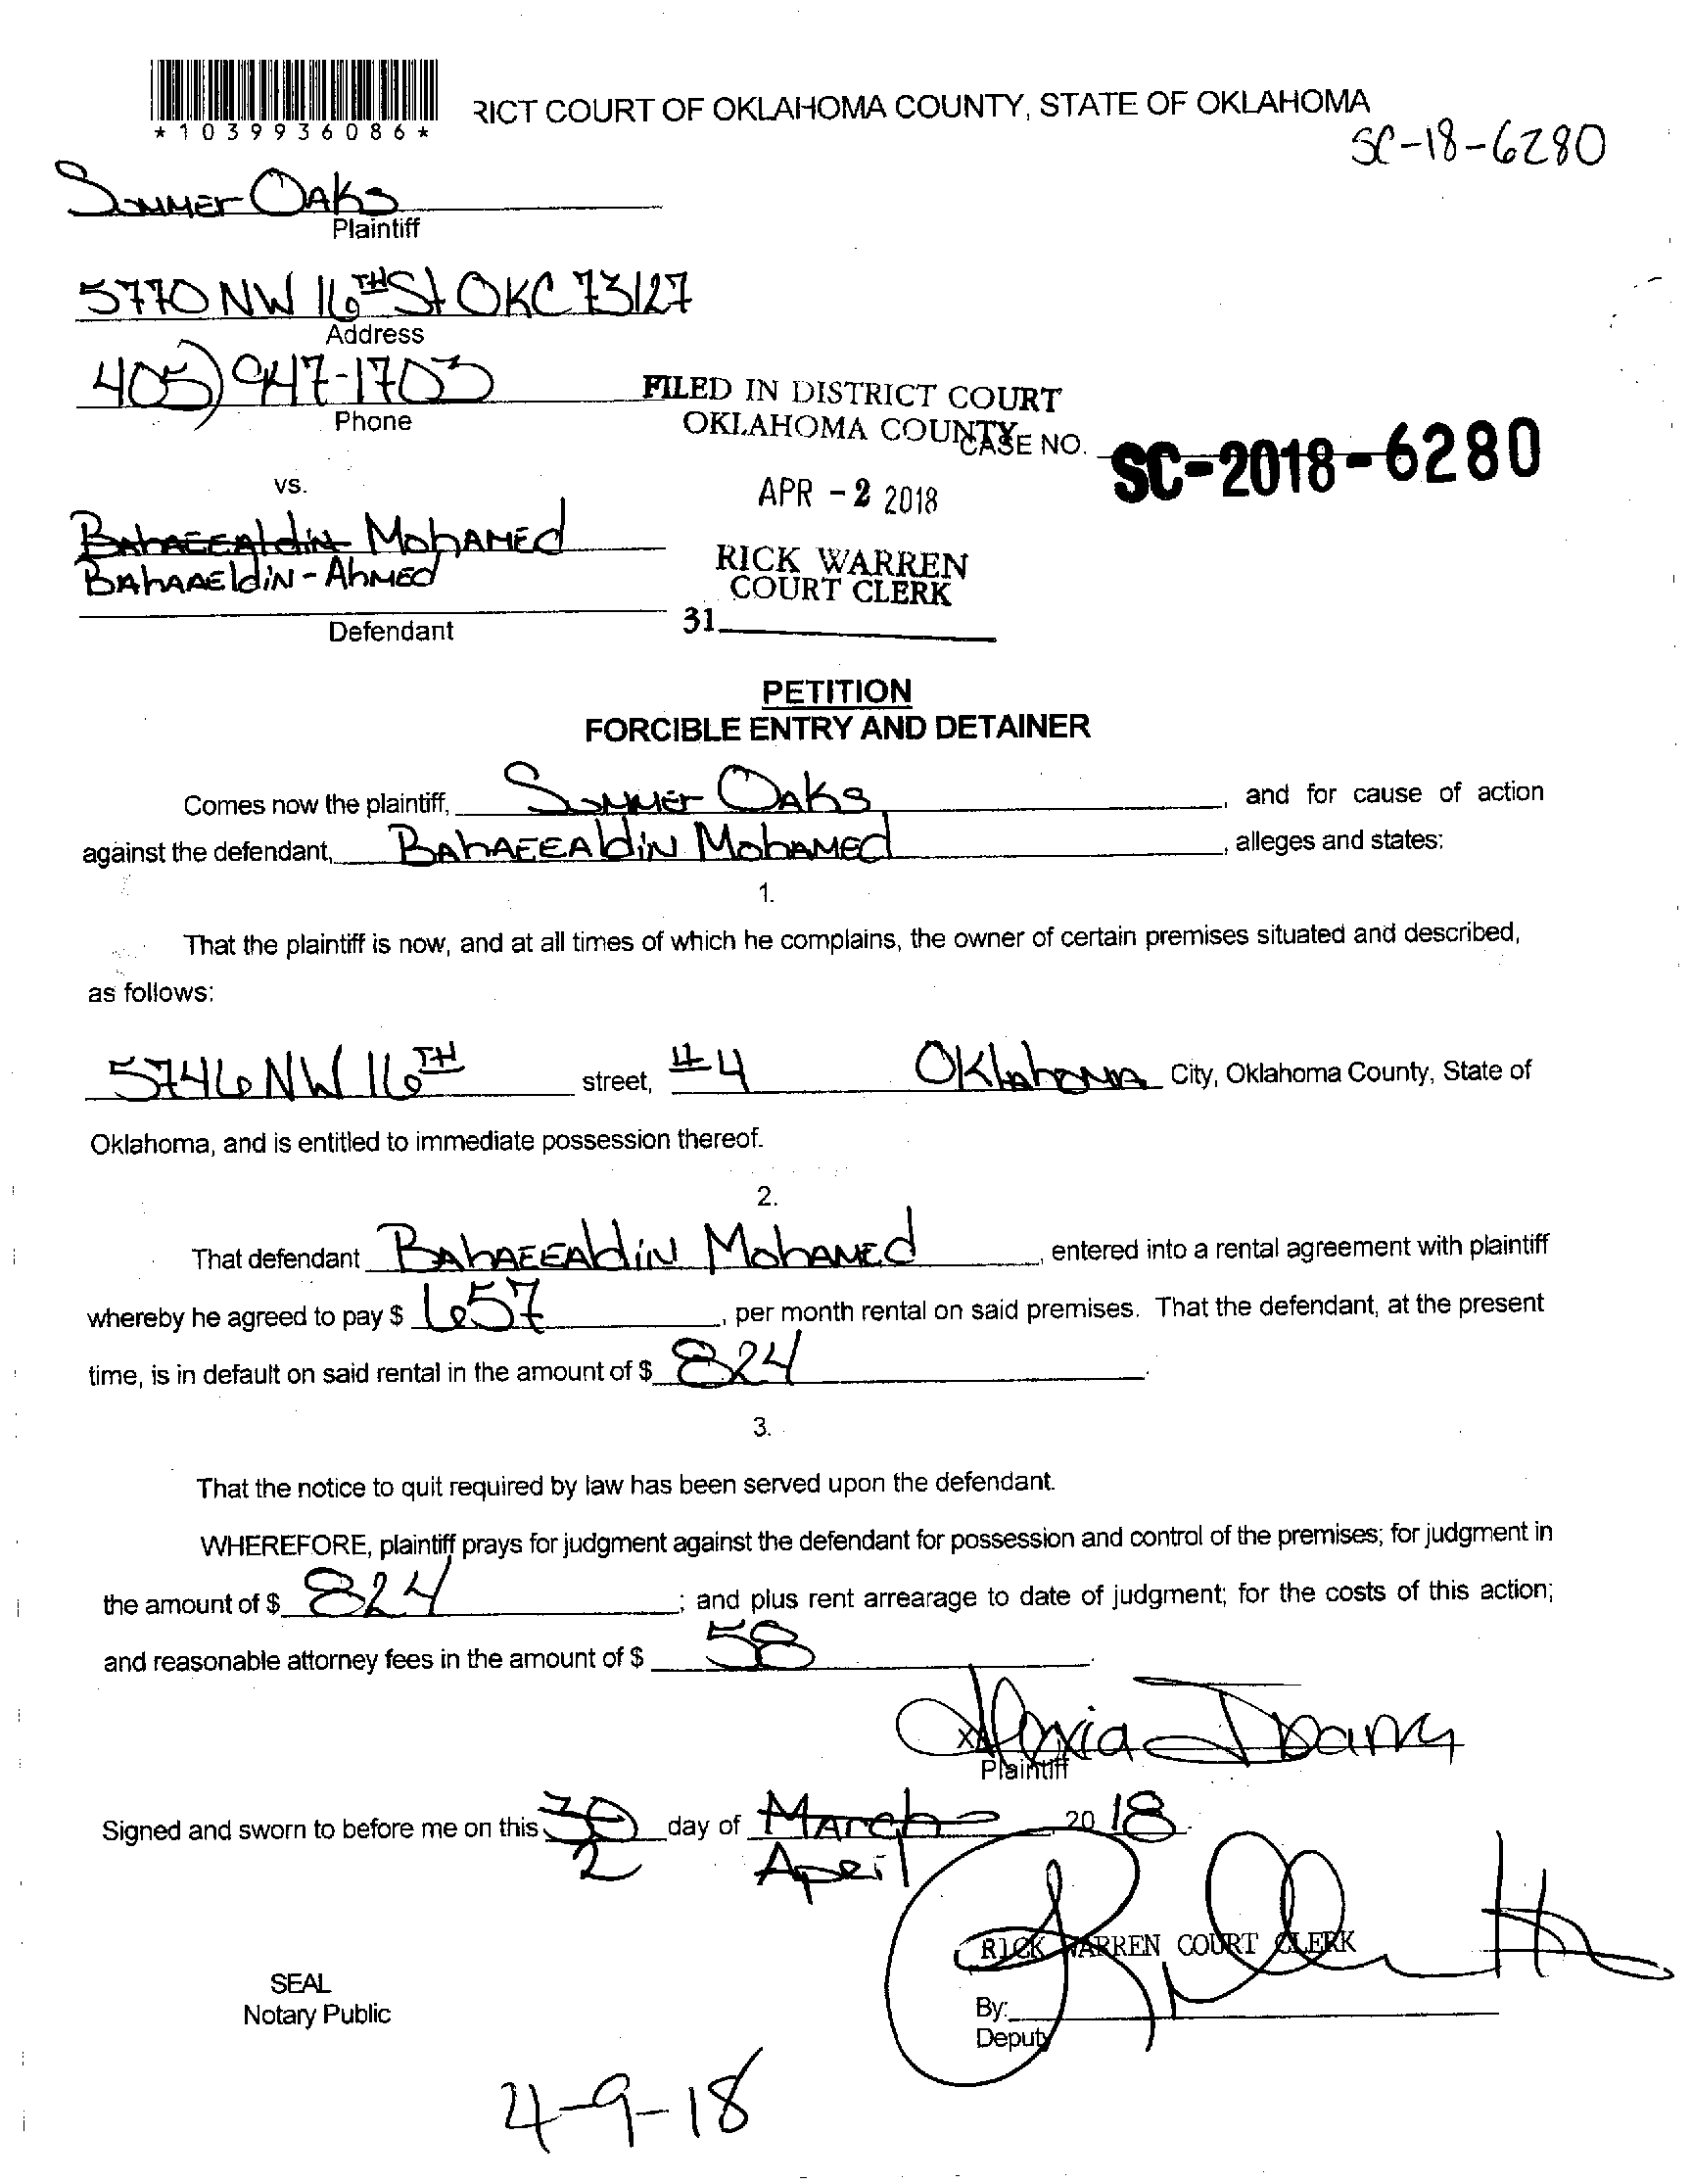 *1039936086*
RICT COURT OF OKLAHOMA COUNTY, STATE OF OKLAHOMA
SC-18-6280
Summer Oaks
Plaintiff
5770 NW 16TH St OKC 73127
Address
405) 947-1703
Phone
FILED IN DISTRICT COURT
OKLAHOMA COUNTY
CASE NO. SC-2018-6280
APR -2 2018
vs.
Bahaeealdin Mohamed
BAhAAEldiN - AhMEd
RICK WARREN
COURT CLERK
31
Defendant
PETITION
FORCIBLE ENTRY AND DETAINER
Comes now the plaintiff, Summer Oaks, and for cause of action
against the defendant, BAhAEEAldiN MohAMEd, alleges and states:
1.
That the plaintiff is now, and at all times of which he complains, the owner of certain premises situated and described,
as follows:
5746 NW 16TH street, #4 OklahomA City, Oklahoma County, State of
Oklahoma, and is entitled to immediate possession thereof.
2.
That defendant BAhAEEAldiN MohAMEd, entered into a rental agreement with plaintiff
whereby he agreed to pay $ 657, per month rental on said premises. That the defendant, at the present
time, is in default on said rental in the amount of $ 824.
3.
That the notice to quit required by law has been served upon the defendant.
WHEREFORE, plaintiff prays for judgment against the defendant for possession and control of the premises; for judgment in
the amount of $ 824; and plus rent arrearage to date of judgment; for the costs of this action;
and reasonable attorney fees in the amount of $ 58.
x
Plaintiff
Signed and sworn to before me on this 30 day of March 2018.
2 April
RICK WARREN COURT CLERK
SEAL
Notary Public
By:
Deputy
4-9-18